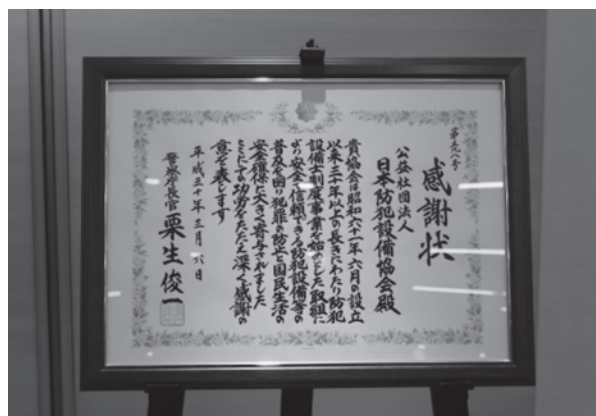 感謝状
公益社団法人
日本防犯設備協会殿
貴協会は昭和六十一年六月の設立
以来三十年以上の長きにわたり防犯
設備士制度事業を始めとした取組に
より安全で信頼できる防犯設備等の
普及を図り犯罪の防止と国民生活の
安全確保に大きく寄与されました
ここにその功労をたたえ深く感謝の
意を表します
平成三十年三月六日
警察庁長官 栗生俊一